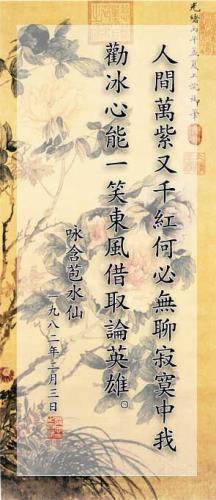 光緒丙午孟夏上浣御筆
人間萬紫又千紅何必無聊寂寞中我
勸冰心能一笑東風借取論英雄。
咏含苞水仙
一九八二年二月三日